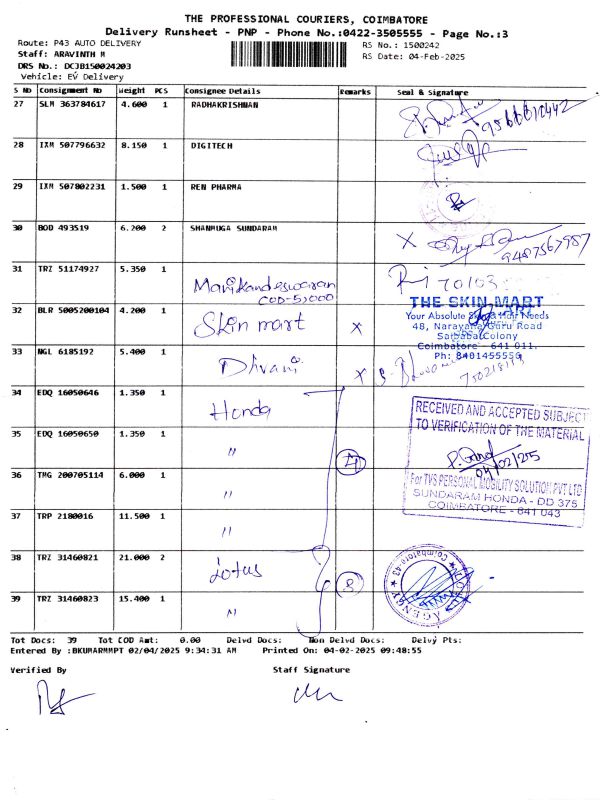 THE PROFESSIONAL COURIERS, COIMBATORE
Delivery Runsheet - PNP - Phone No.:0422-3505555 - Page No.:3
Route: P43 AUTO DELIVERY
RS No.: 1500242
Staff: ARAVINTH M
RS Date: 04-Feb-2025
DRS No.: DCJB150024203
Vehicle: EV Delivery
S NO Consignment No Weight PCS Consignee Details Remarks Seal & Signature
27 SLM 363784617 4.600 1 RADHAKRISHNAN
28 IXM 507796632 8.150 1 DIGITECH
29 IXM 507802231 1.500 1 REN PHARMA
30 BOD 493519 6.200 2 SHANMUGA SUNDARAM X
9487567987
31 TRZ 51174927 5.350 1 Manikandeswaran
COD-51000
70103
32 BLR 5005200104 4.200 1 Skin mart X
THE SKIN MART
Your Absolute Skin & Hair Needs
48, Narayana Guru Road
Saibaba Colony
Coimbatore - 641 011.
Ph: 8401455556
33 NGL 6185192 5.400 1 Dhvani X
34 EDQ 16050646 1.350 1 Honda
35 EDQ 16050650 1.350 1 "
4
36 TMG 200705114 6.000 1 "
37 TRP 2180016 11.500 1 "
RECEIVED AND ACCEPTED SUBJECT
TO VERIFICATION OF THE MATERIAL
04/02/205
For TVS PERSONAL MOBILITY SOLUTION PVT LTD
SUNDARAM HONDA - DD 375
COIMBATORE - 641 043
38 TRZ 31460821 21.000 2 Lotus
39 TRZ 31460823 15.400 1 "
3
AGENCY
Coimbatore-43
Tot Docs: 39 Tot COD Amt: 0.00 Delvd Docs: Non Delvd Docs: Delvy Pts:
Entered By :BKUMARMMPT 02/04/2025 9:34:31 AM Printed On: 04-02-2025 09:48:55
Verified By
Staff Signature